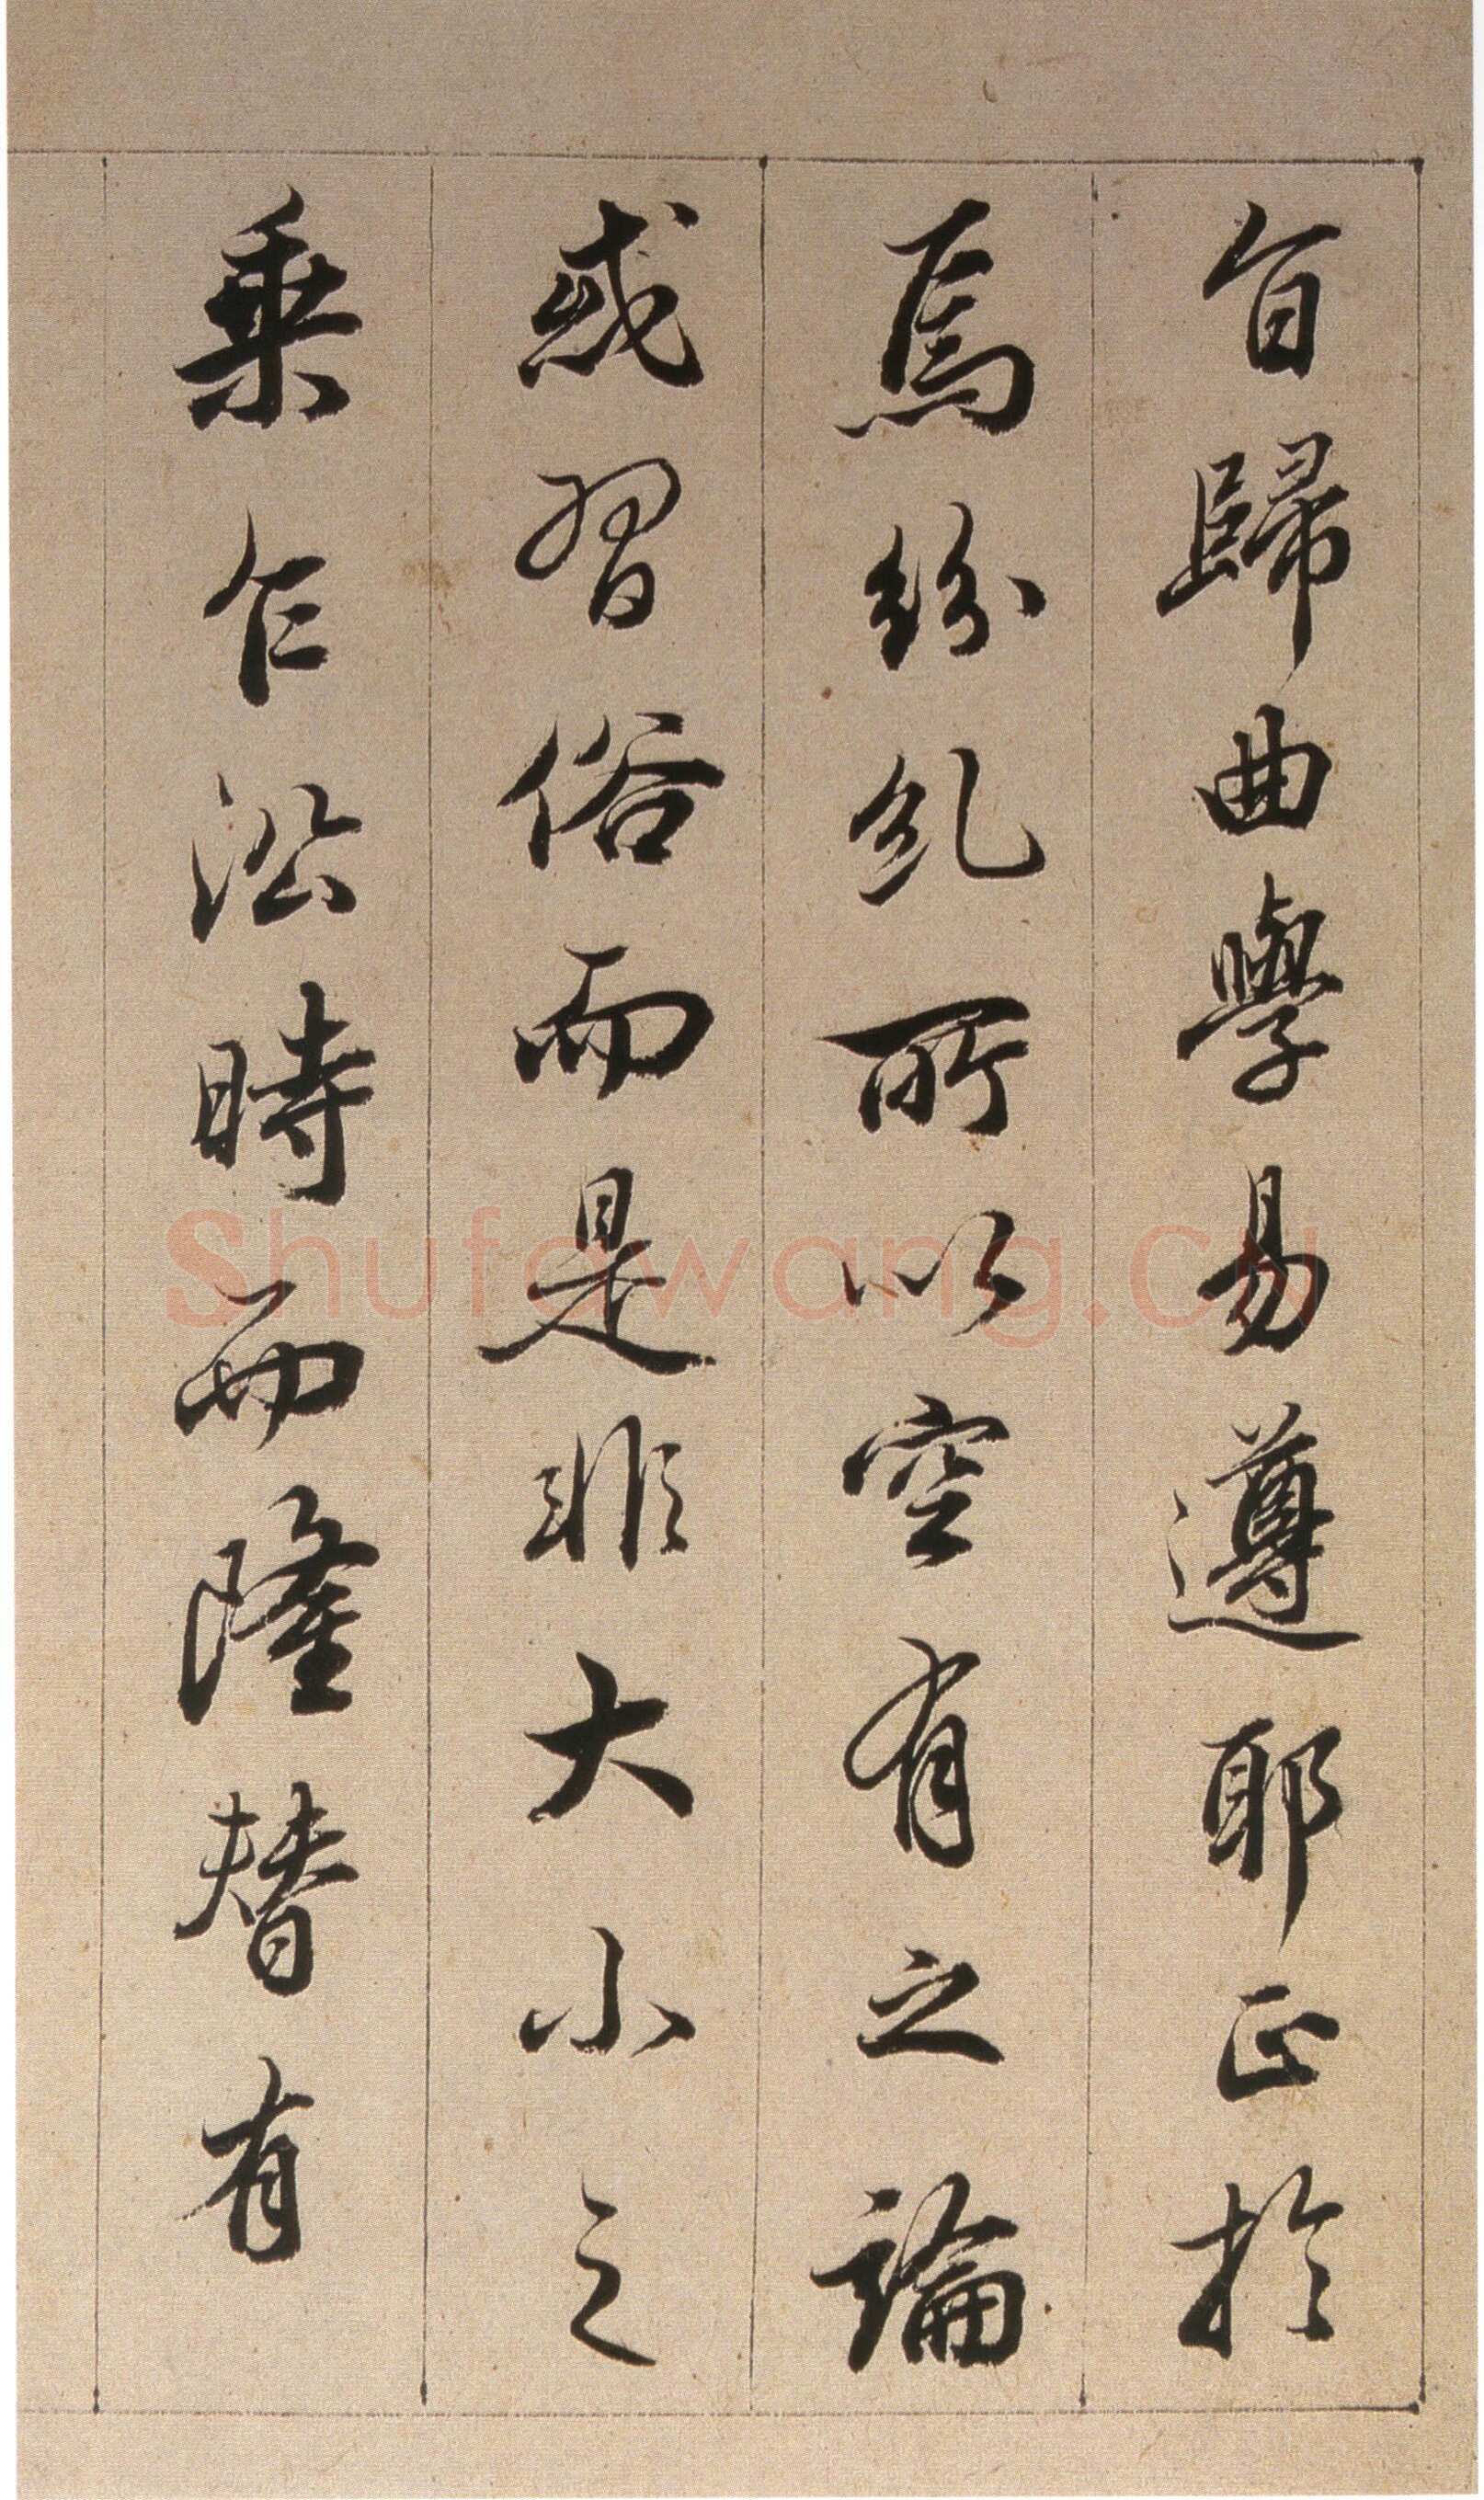 旨歸曲學易遵耶正於
焉紛糺所以空有之論
或習俗而是非大小之
乗乍沿時而隆替有
Shufawang.cn